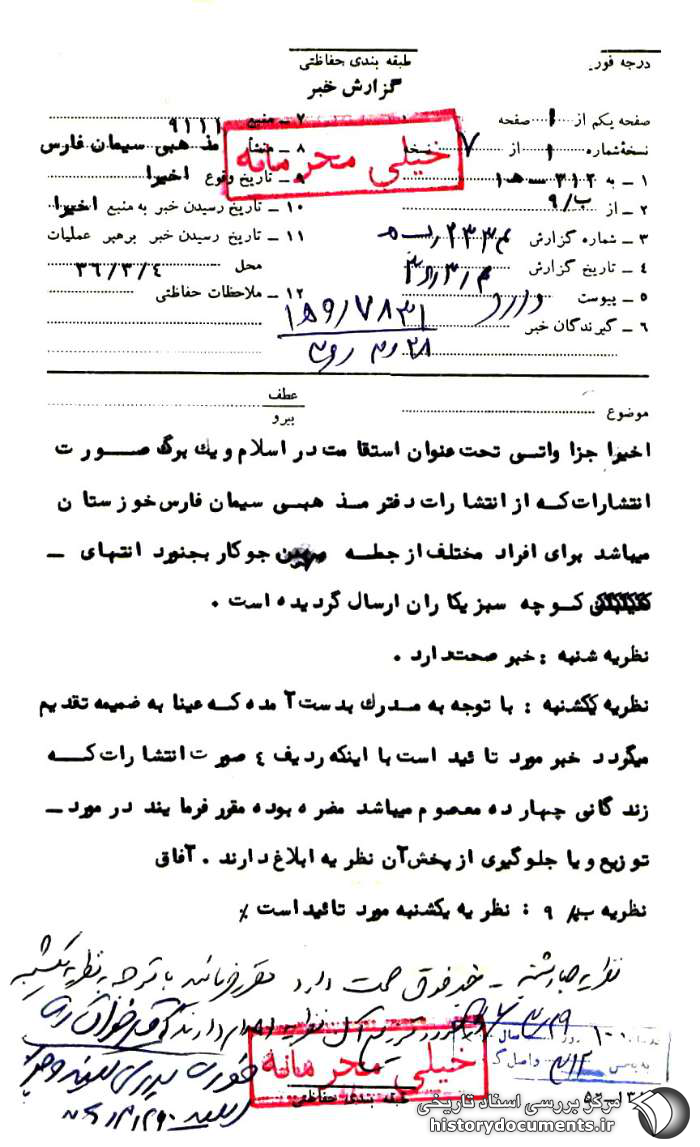 درجه فوریـ
طبقه بندی حفاظتی
گزارش خبر
صفحه یکم از ۱ صفحه
نسخهٔ شماره ۱ از ۷ نسخه
۱ ـ به ۳۱۲ ـ هـ ۱
۲ ـ از ۹/ب
۳ ـ شماره گزارش
۴ ـ تاریخ گزارش
۵ ـ پیوست دارد
۶ ـ گیرندگان خبر
۷ ـ منبع ۹۱۱۱
۸ ـ منشأ مذهبی سیمان فارس
۹ ـ تاریخ وقوع اخیرا
۱۰ ـ تاریخ رسیدن خبر به منبع اخیرا
۱۱ ـ تاریخ رسیدن خبر برهبر عملیات
محل ۳۶/۳/۴
۱۲ ـ ملاحظات حفاظتی
خیلی محرمانه
موضوع
عطف
پیرو
اخیرا جزا واتسی تحت عنوان استقا مت در اسلام و یك برگ صـــور ت
انتشارات كـه از انتشا رات دفتر مـذ هبـی سیمان فارس خوزستا ن
میباشد برای افراد مختلف از جطـه جوکار بجنورد انتهای ـ
کـوچه سبزیکا ران ارسال گردیده است .
نظریه شنبه : خبر صحت دارد .
نظریه یکشنبه : با توجه به مـدرك بدست آ مده كـه عینا به ضمیمه تقدیم
میگردد خبر مورد تا ئید است با اینکه ردیف ٤ صورت انتشا رات كـــه
زندگانی چهار ده معصوم میباشد مضره بوده مقرر فرما یند در مورد ـ
توزیع و یا جلوگیری از پخش آن نظریه ابلاغ دارند . آفاق
نظریه ب/ ۹ : نظریه یکشنبه مورد تائید است ٪
نظریه چهارشنبه ـ خبر فوق صحت دارد مقرر فرمائید با توجه به نظریه یکشنبه
خیلی محرمانه
طبقه بندی حفاظتی
مرکز بررسی اسناد تاریخی
historydocuments.ir